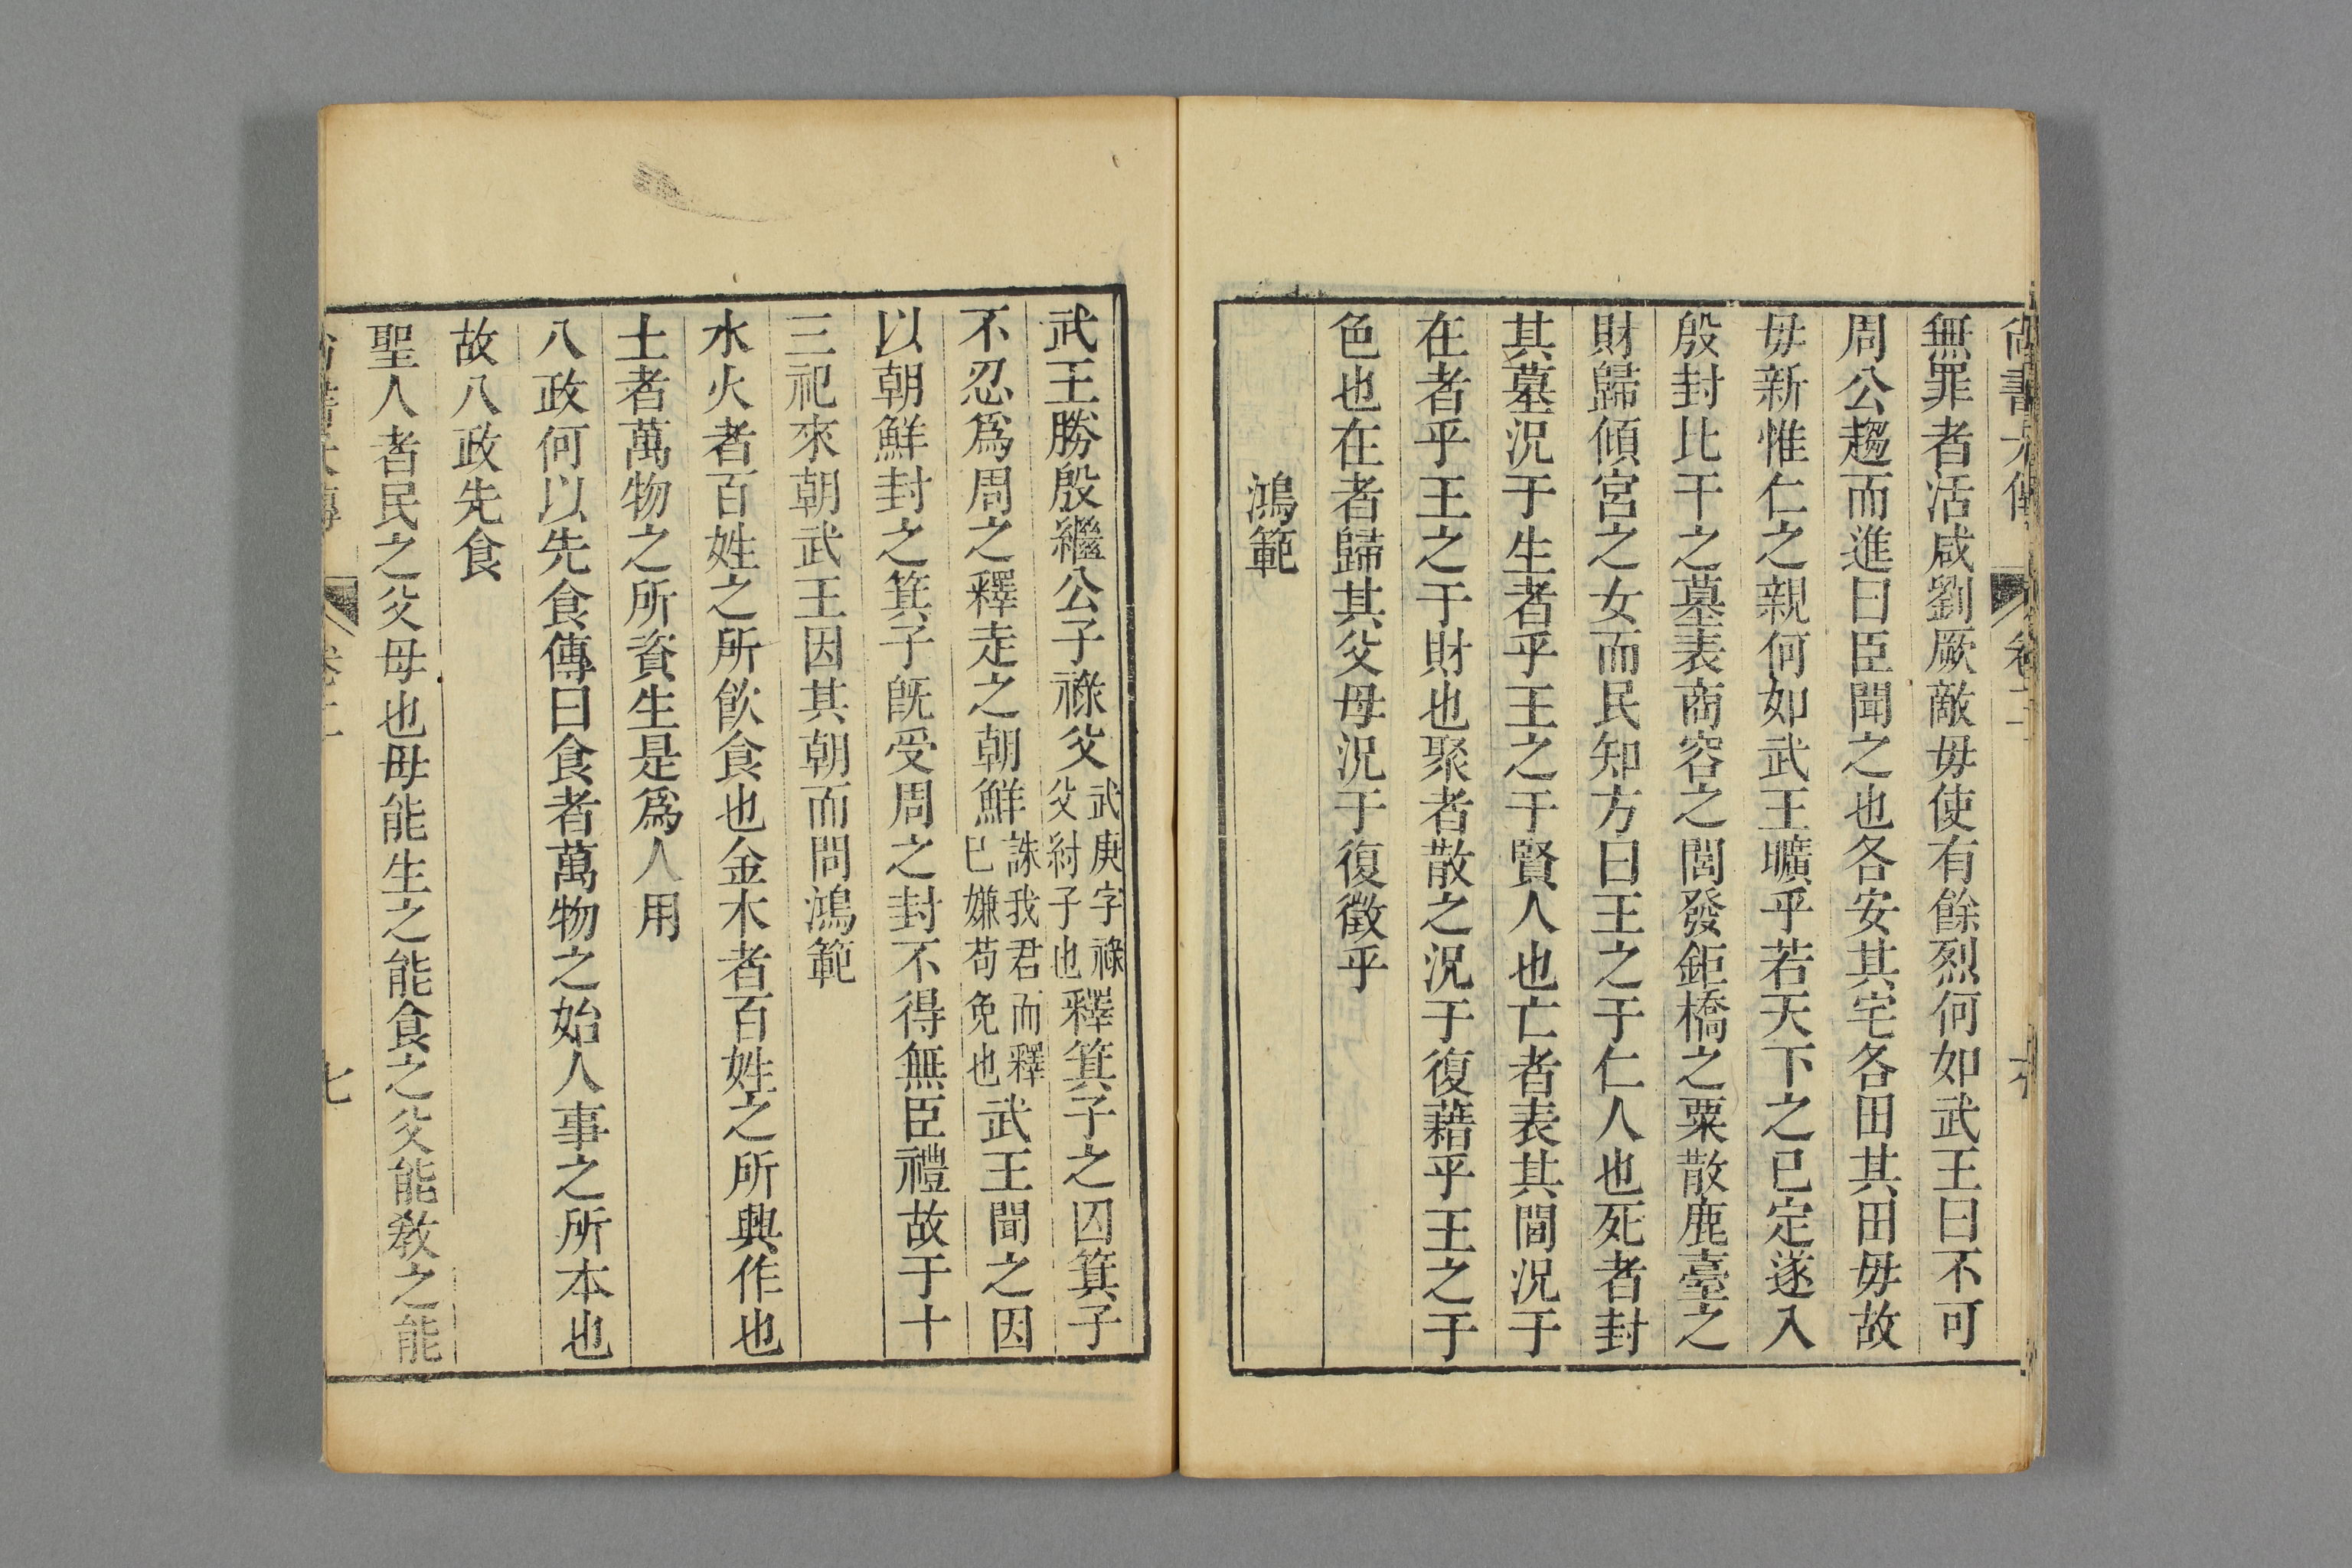 尚書大傳 卷二 六
無罪者活咸劉厥敵毋使有餘烈何如武王曰不可
周公趨而進曰臣聞之也各安其宅各田其田毋故
毋新惟仁之親何如武王曠乎若天下之已定遂入
殷封比干之墓表商容之閭發鉅橋之粟散鹿臺之
財歸傾宮之女而民知方曰王之于仁人也死者封
其墓況于生者乎王之于賢人也亡者表其閭況于
在者乎王之于財也聚者散之況于復藉乎王之于
色也在者歸其父母況于復徵乎
鴻範
武王勝殷繼公子祿父武庚字祿父紂子也釋箕子之囚箕子
不忍爲周之釋走之朝鮮誅我君而釋己嫌苟免也武王聞之因
以朝鮮封之箕子旣受周之封不得無臣禮故于十
三祀來朝武王因其朝而問鴻範
水火者百姓之所飮食也金木者百姓之所興作也
土者萬物之所資生是爲人用
八政何以先食傳曰食者萬物之始人事之所本也
故八政先食
聖人者民之父母也母能生之能食之父能敎之能
尚書大傳 卷二 七